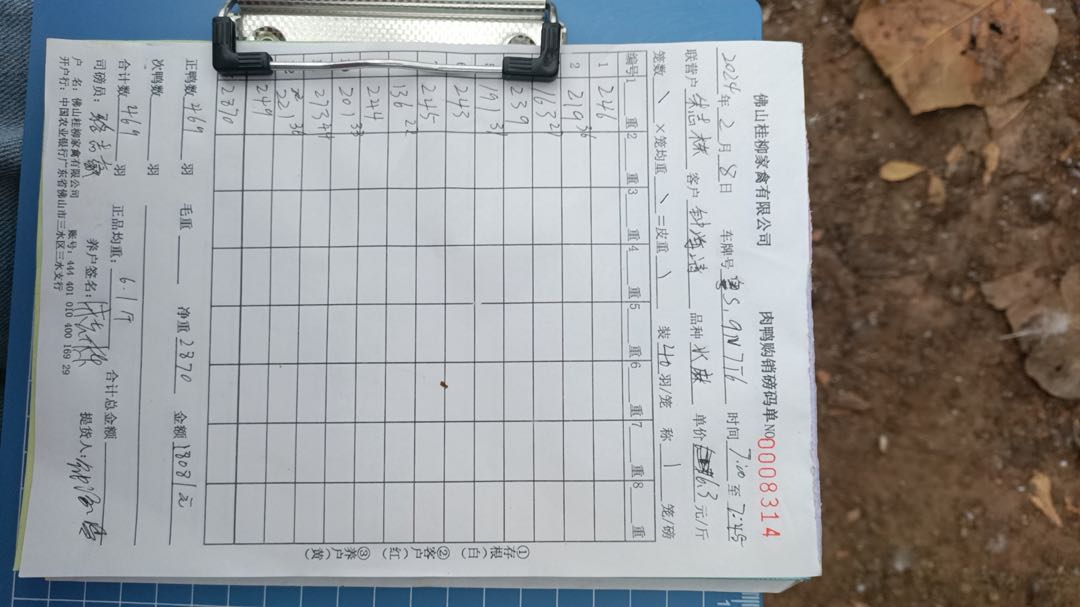 佛山桂柳家禽有限公司 肉鸭购销磅码单 NO 0008314
2024年2月8日 车牌号 粤S,9N7T6 时间 7:00 至 7:45
联营户 客户 品种 水麻 单价 6.3 元/斤
笼数 \ ×笼均重 \ =皮重 \ 装 40 羽/笼 称 1 笼/磅
编号 1 重 2 重 3 重 4 重 5 重 6 重 7 重 8 重
1 246
2 219 36
163 27
239
191 31
243
245
136 22
224
201 33
273 44
221 36
249
2870
正鸭数 469 羽 毛重 净重 2870 金额 18081 元
次鸭数 羽
合计数 469 羽 正品均重: 6.1斤 合计总金额
司磅员: 养户签名: 提货人:
户 名: 佛山桂柳家禽有限公司 账号: 444 401 010 400 169 29
开户行: 中国农业银行广东省佛山市三水区三水支行
①存根(白)
②客户(红)
③养户(黄)